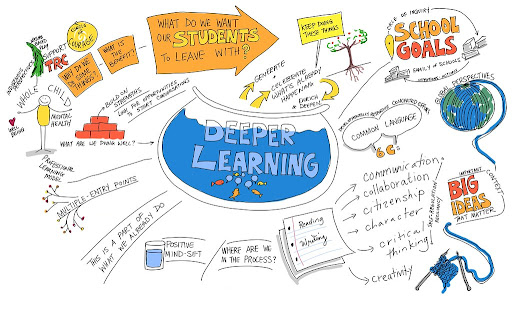 WHAT DO WE WANT
OUR STUDENTS
TO LEAVE WITH?
KEEP DOING
THESE THINGS!
SCHOOL
GOALS
FAMILY OF SCHOOLS
CIRCLE OF COURAGE
SUPPORT
TRC
WHY DO WE
DO SOME
THINGS?
WHAT IS
THE BENEFIT?
GENERATE
CELEBRATE
WHAT'S ALREADY
HAPPENING
ENRICH
& DEEPEN
GLOBAL PERSPECTIVES
WHOLE CHILD
WELL BEING
MENTAL
HEALTH
BUILD ON
STRENGTHS
LOOK FOR OPPORTUNITIES
TO START CONVERSATIONS
WHAT ARE WE DOING WELL?
DEEPER
LEARNING
COMMON LANGUAGE
6 C's
PROFESSIONAL
LEARNING
MODEL
MULTIPLE-ENTRY POINTS
THIS IS A PART OF
WHAT WE ALREADY DO
POSITIVE
MIND-SET
WHERE ARE WE
IN THE PROCESS?
Reading
Writing
communication
collaboration
citizenship
character
critical
thinking
creativity
IMPORTANT
CONTEXT
BIG
IDEAS
THAT MATTER